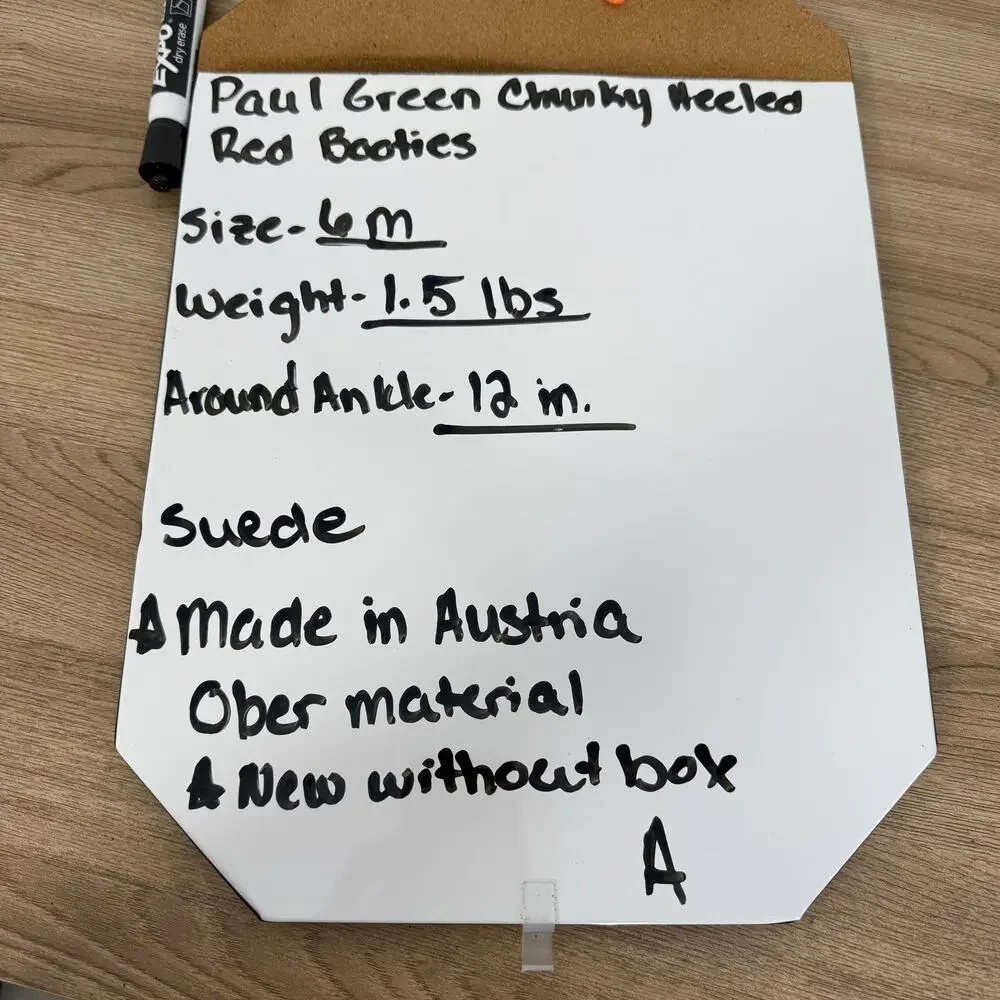 EXPO
dry erase
Paul Green Chunky Heeled
Red Booties
Size- 6 m
Weight- 1.5 lbs
Around Ankle- 12 in.
Suede
Made in Austria
Ober material
New without box
A